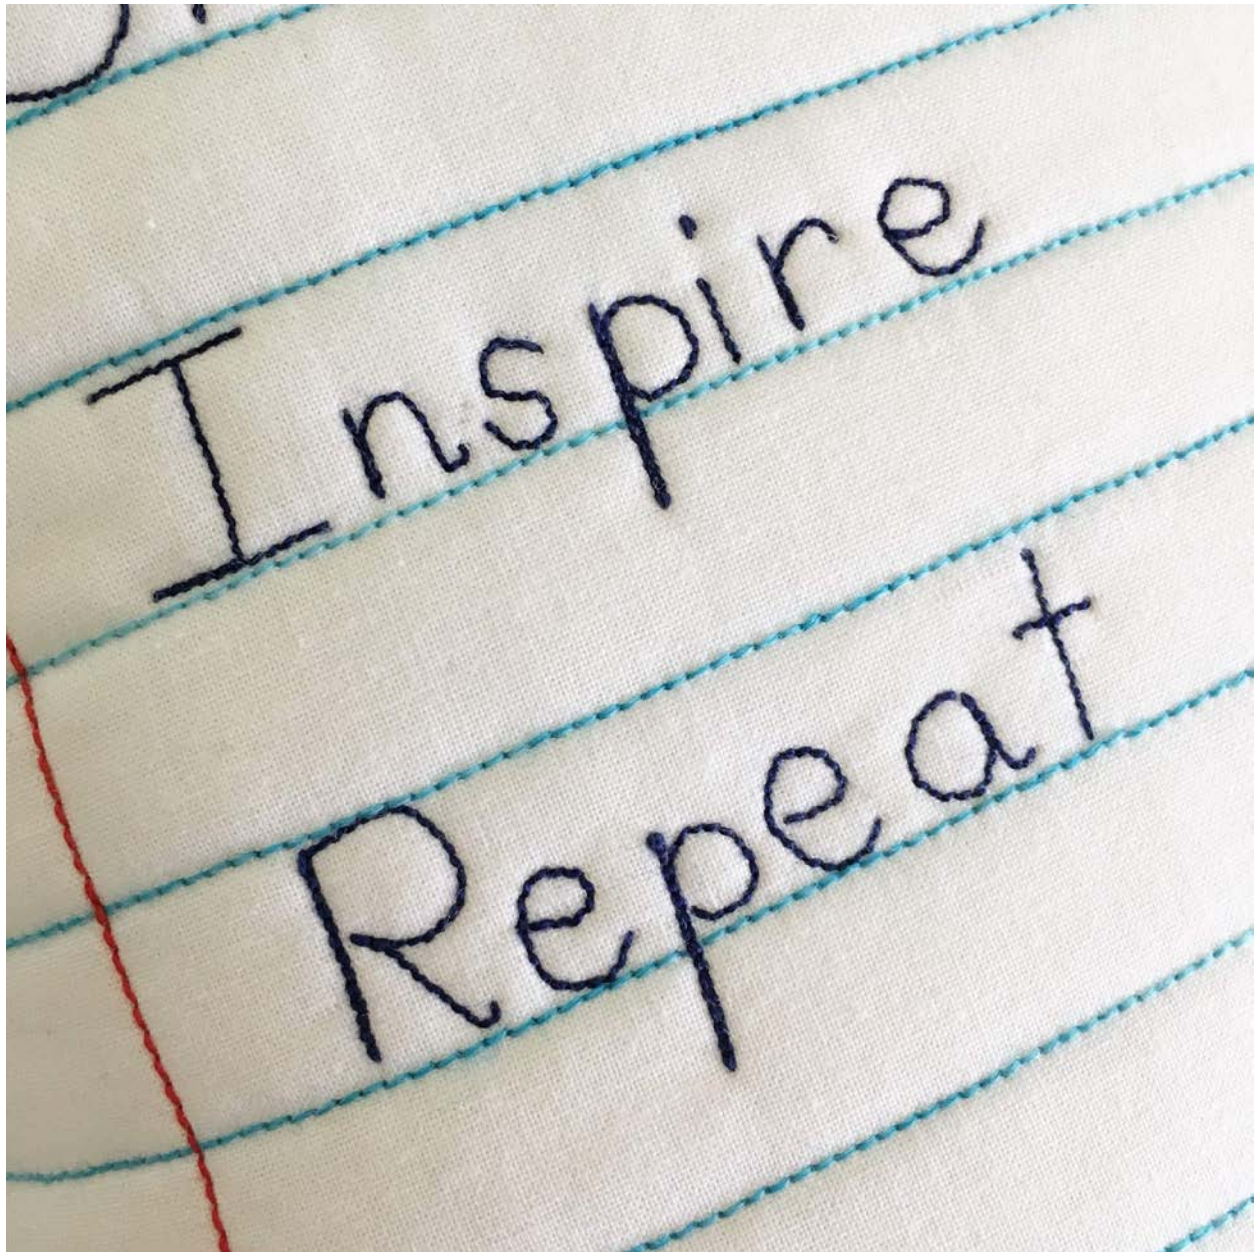 Inspire
Repeat